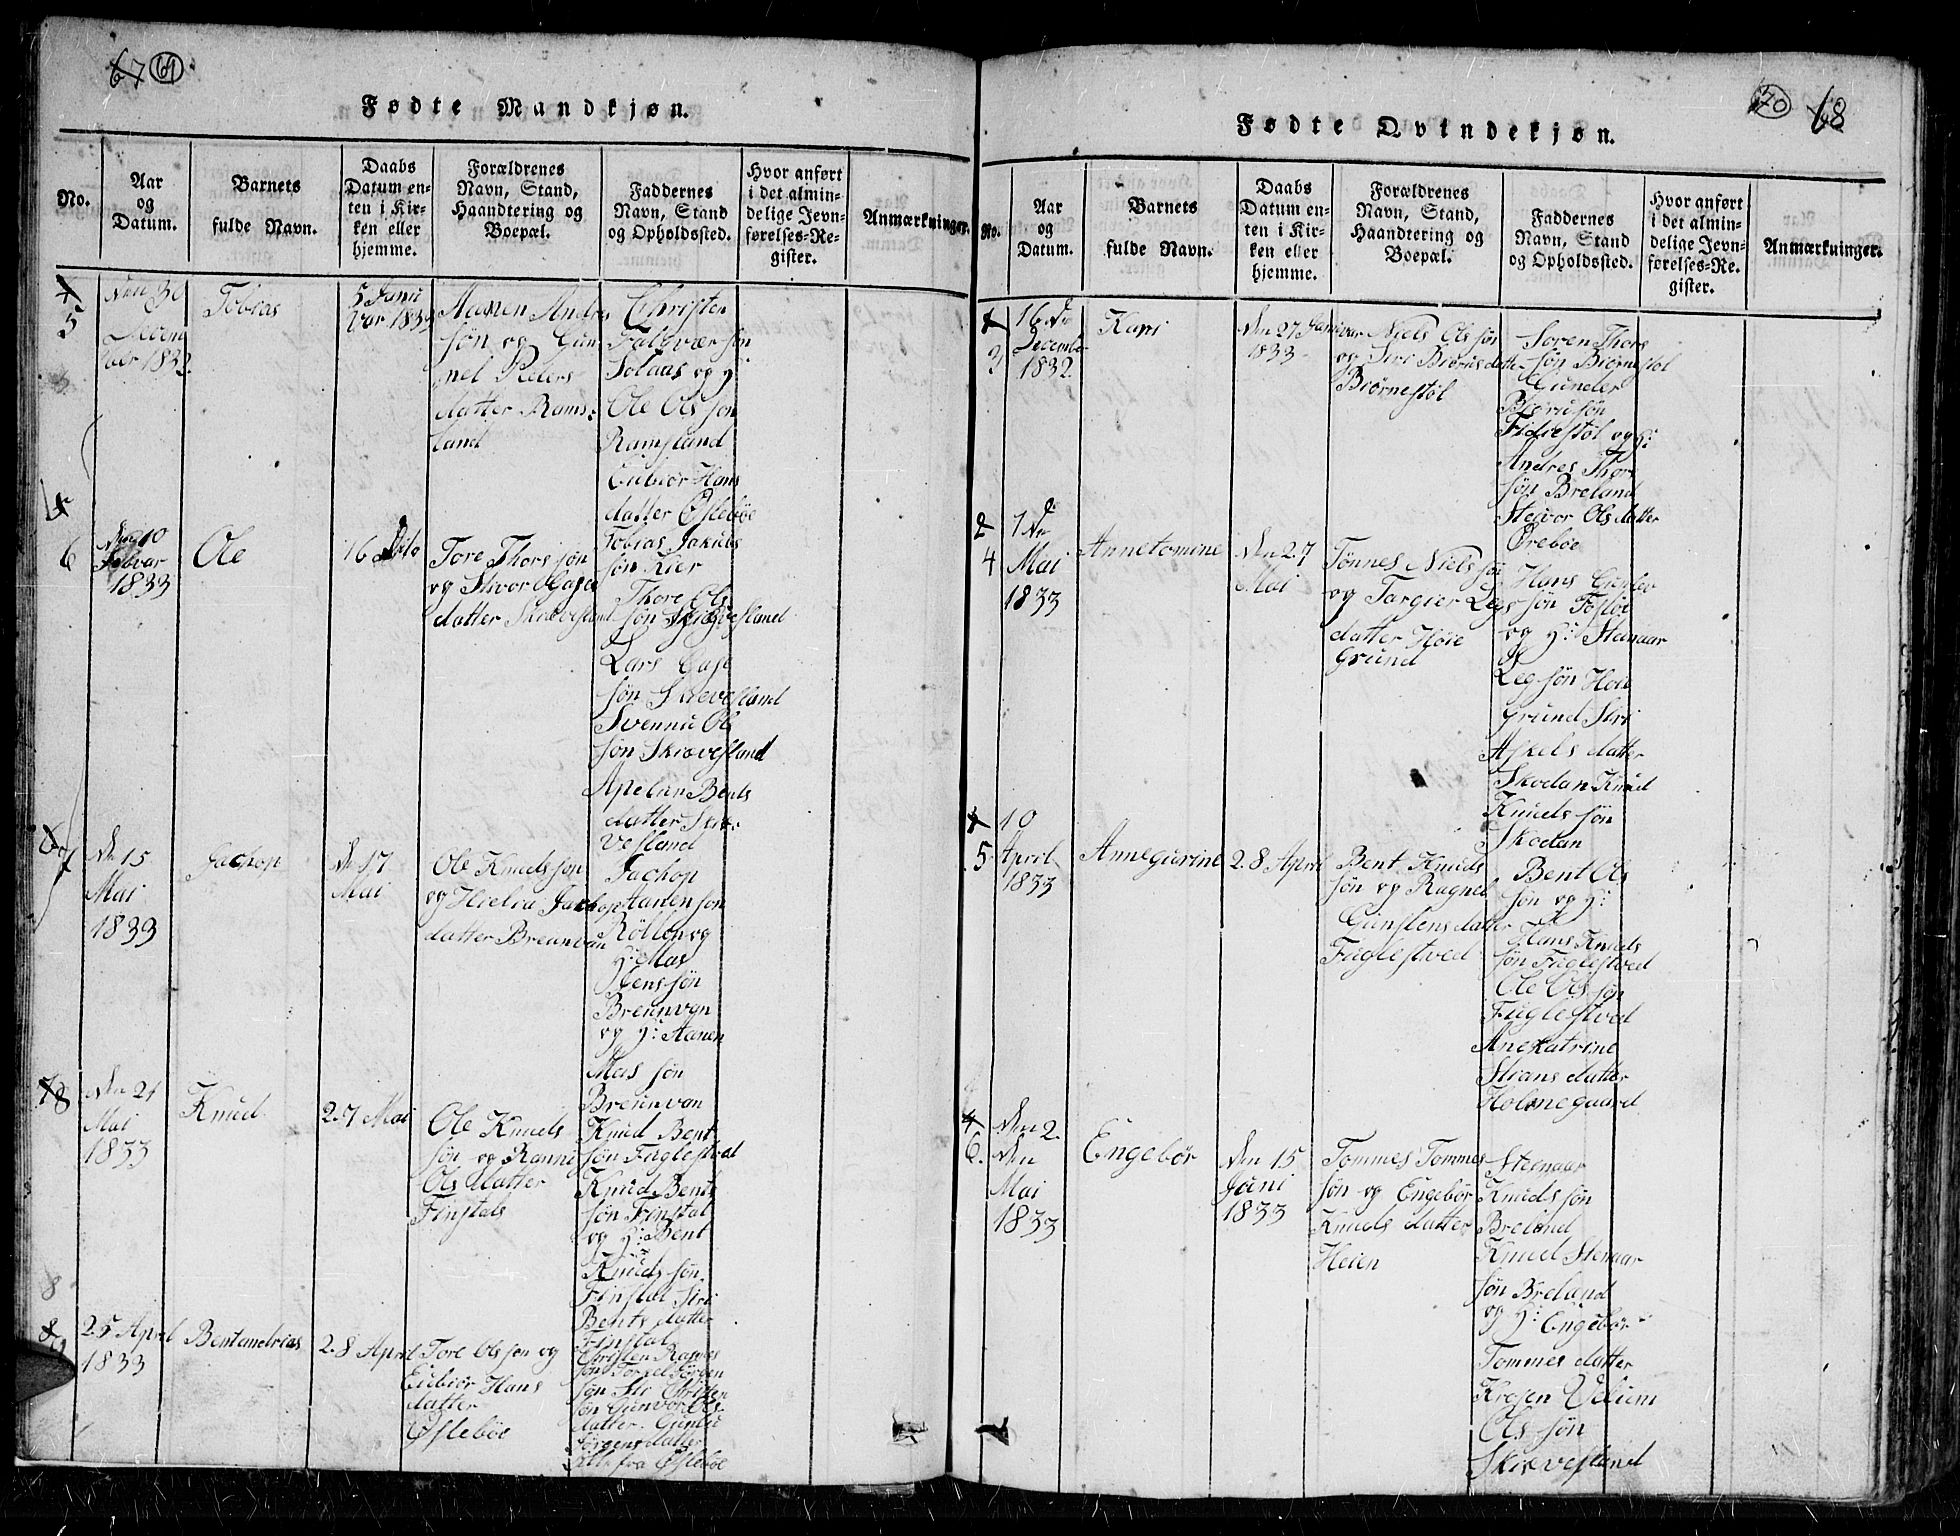 67 69
Fødte Mandkjøn.
No.
Aar
og
Datum.
Barnets
fulde Navn.
Daabs
Datum en-
ten i Kir-
ken eller
hjemme.
Forældrenes
Navn, Stand,
Haandtering og
Boepæl.
Faddernes
Navn, Stand
og Opholdssted.
Hvor anført
i det almin-
delige Jevn-
førelses-Re-
gister.
Anmærkninger.
5
30
1832
Tobias
5 Janu
var 1833
Aanen Andrs
søn og Gun
nel Peders
datter Rams-
land
Christen
Falqvær søn
Solaas og y:
Ole Ols søn
Ramsland
Eidbiør Hans
datter Øslebøe
Tobias Jakobs
søn Kier
6
10
Febvar
1833
Ole
16 Dito
Tore Thors søn
og Sivor Gase
datter Skrævesland
Thore Ols
søn Skrævesland
Lars Gase
søn Skrævesland
Svennu Ole
søn Skrævesland
Apelun Bents
datter Skræ
vesland
7
Den 15
Mai
1833
Jachop
Den 17
Mai
Ole Knuds søn
og Hoelva Jachop
datter Breunvan
Jachop
Aanen søn
Røllen og
y: Mas
Jens søn
Breunvan
og y: Aanen
Mas søn
Breunvan
8
Den 21
Mai
1833
Knud
27 Mai
Ole Knuds
søn og Ranni
Ols datter
Finstals
Knud Bent
søn Fuglestvd
Knud Bents
søn Finstal
og y: Bent
Knuds søn
Finstal Siri
Bents datter
Finstal
9
25 April
1833
Bentandreas
28 April
Tore Ols søn og
Eidbiør Hans
datter
Øslebøe
Christen Rasmus
søn Torsel Jørgen
søn Siri Christen
søn Gunvor Ols
datter Gunlu
Jørgens datter
Alle fra Øslebøe
70 68
Fødte Qvindekjøn.
No.
Aar
og
Datum.
Barnets
fulde Navn.
Daabs
Datum en-
ten i Kir-
ken eller
hjemme.
Forældrenes
Navn, Stand,
Haandtering og
Boepæl.
Faddernes
Navn, Stand
og Opholdssted.
Hvor anført
i det almin-
delige Jevn-
førelses-Re-
gister.
Anmærkninger.
3
16 de
December
1832
Kari
Den 27 Janvar
1833
Niels Ols søn
og Siri Biørns datter
Biørnestøl
Soren Thors
søn Biørnestøl
Gunder
Biørn søn
Fidiestøl og y:
Andres Thor
søn Breland
Steivor Ols datter
Ørebøe
4
1 de
Mai
1833
Annetomine
Den 27
Mai
Tønnes Niels søn
og Targier Legs
datter Høie
Grund
Hans Gunder
søn Fosløe
og y: Stenaar
Leg søn Høie
Grund Siri
Askels datter
Skodan Knud
Knuds søn
Skodan
5
10
April
1833
Annegurine
28 April
Bent Knuds
søn og Ragnel
Gunstens datter
Fuglestved
Bent Ols
søn og y:
Hans Knuds
søn Fuglestved
Ole Ols søn
Fuglestved
Anekatrine
Stians datter
Holmegaard
6.
Den 2
Den
Mai
1833
Engebør
Den 15
Juni
1833
Tommes Tommes
søn og Engebør
Knuds datter
Heien
Steenaar
Knuds søn
Breland
Knud Stenaar
søn Breland
og y: Engebør
Tommes datter
Krosen Vilum
Ols søn
Skrævesland